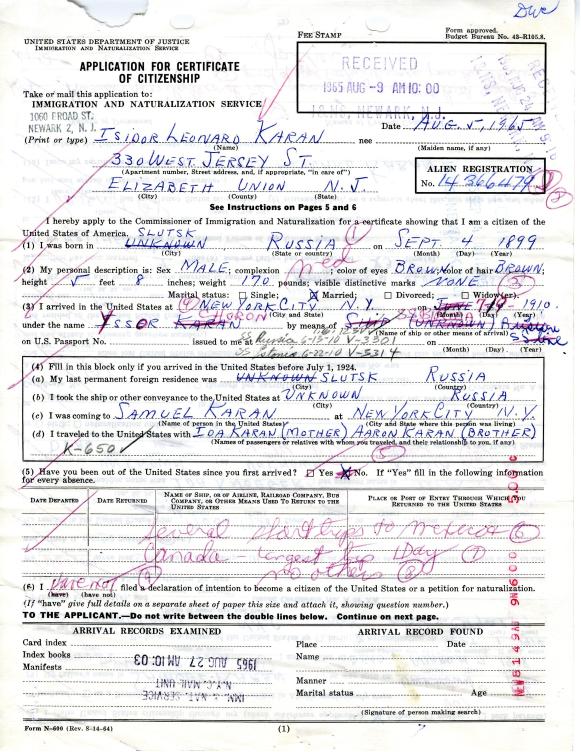 Dwc
UNITED STATES DEPARTMENT OF JUSTICE
IMMIGRATION AND NATURALIZATION SERVICE
FEE STAMP
Form approved.
Budget Bureau No. 43-R105.8.
APPLICATION FOR CERTIFICATE
OF CITIZENSHIP
RECEIVED
1965 AUG -9 AM 10:00
NEWARK, N.J.
Take or mail this application to:
IMMIGRATION AND NATURALIZATION SERVICE
1060 BROAD ST.
NEWARK 2, N. J.
Date AUG. 5, 1965
(Print or type) ISIDOR LEONARD KARAN nee
(Name) (Maiden name, if any)
330 WEST JERSEY ST.
(Apartment number, Street address, and, if appropriate, "in care of")
ELIZABETH UNION N.J.
(City) (County) (State)
ALIEN REGISTRATION
No. 14 366 479
See Instructions on Pages 5 and 6
I hereby apply to the Commissioner of Immigration and Naturalization for a certificate showing that I am a citizen of the
United States of America. SLUTSK
(1) I was born in UNKNOWN RUSSIA on SEPT. 4 1899
(City) (State or country) (Month) (Day) (Year)
(2) My personal description is: Sex MALE; complexion med; color of eyes BROWN; color of hair BROWN;
height 5 feet 8 inches; weight 170 pounds; visible distinctive marks NONE
Marital status: Single; Married; Divorced; Widow(er).
(3) I arrived in the United States at NEW YORK CITY, N.Y. JUNE 1910.
(City and State) (Month) (Day) (Year)
under the name YSSOR KARAN by means of SHIP (UNKNOWN)
(Name of ship or other means of arrival)
on U.S. Passport No. issued to me at on
SS Russia 6-13-10 V-3301
SS Estonia 6-22-10 V-5314
(Month) (Day) (Year)
(4) Fill in this block only if you arrived in the United States before July 1, 1924.
(a) My last permanent foreign residence was UNKNOWN SLUTSK RUSSIA
(City) (Country)
(b) I took the ship or other conveyance to the United States at UNKNOWN RUSSIA
(City) (Country)
(c) I was coming to SAMUEL KARAN at NEW YORK CITY, N.Y.
(Name of person in the United States) (City and State where this person was living)
(d) I traveled to the United States with IDA KARAN (MOTHER) AARON KARAN (BROTHER)
(Names of passengers or relatives with whom you traveled, and their relationship to you, if any)
K-650
(5) Have you been out of the United States since you first arrived? Yes No. If "Yes" fill in the following information
for every absence.
DATE DEPARTED
DATE RETURNED
NAME OF SHIP, OR OF AIRLINE, RAILROAD COMPANY, BUS
COMPANY, OR OTHER MEANS USED TO RETURN TO THE
UNITED STATES
PLACE OR PORT OF ENTRY THROUGH WHICH YOU
RETURNED TO THE UNITED STATES
Several short trips to Mexico 6
Canada - longest trip 1 day 7
no others 8
(6) I have not filed a declaration of intention to become a citizen of the United States or a petition for naturalization.
(have) (have not)
(If "have" give full details on a separate sheet of paper this size and attach it, showing question number.)
TO THE APPLICANT.—Do not write between the double lines below. Continue on next page.
ARRIVAL RECORDS EXAMINED
Card index
Index books
Manifests
1965 AUG 27 AM 10 03
N.Y.C. MAIL UNIT
IMM. & NAT. SERVICE
ARRIVAL RECORD FOUND
Place Date
Name
Manner
Marital status Age
(Signature of person making search)
Form N-600 (Rev. 8-14-64)
(1)